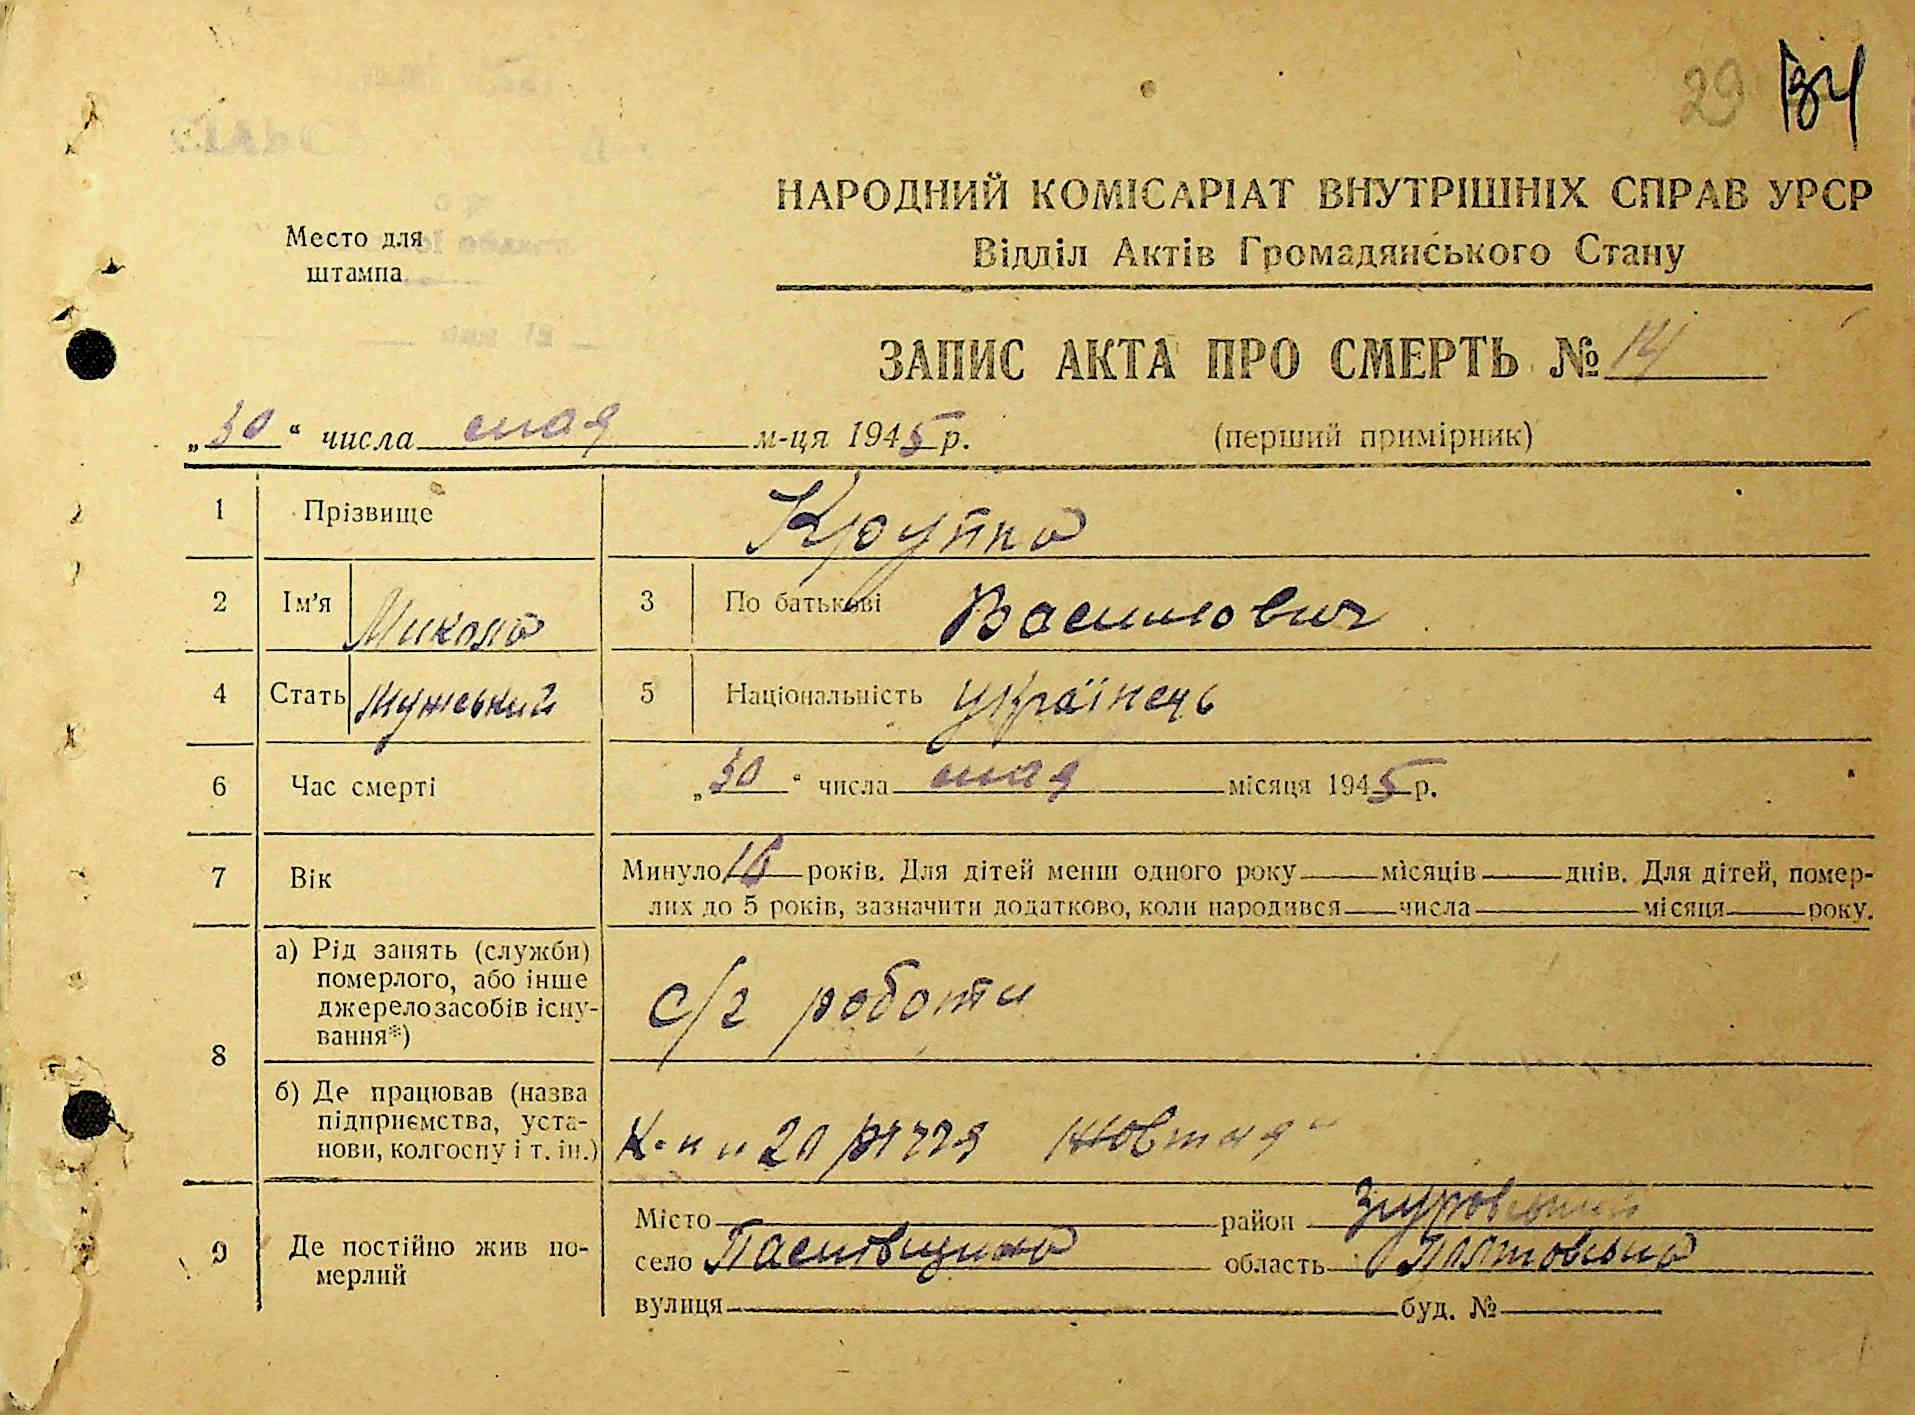 29 134
НАРОДНИЙ КОМІСАРІАТ ВНУТРІШНІХ СПРАВ УРСР
Відділ Актів Громадянського Стану
Место для
штампа
ЗАПИС АКТА ПРО СМЕРТЬ № 14
„30“ числа мая м-ця 1945 р. (перший примірник)
1 Прізвище Крупка
2 Ім'я Микола 3 По батькові Василович
4 Стать Мужський 5 Національність українець
6 Час смерті „30“ числа мая місяця 1945 р.
7 Вік Минуло 16 років. Для дітей менш одного року місяців днів. Для дітей, помер-
лих до 5 років, зазначити додатково, коли народився числа місяця року.
8 а) Рід занять (служби)
померлого, або інше
джерело засобів існу-
вання*) с/г роботи
б) Де працював (назва
підприємства, уста-
нови, колгоспу і т. ін.) К-п „20 річчя Жовтня“
9 Де постійно жив по-
мерлий
Місто район Згуровський
село Пасковщина область Полтовська
вулиця буд. №